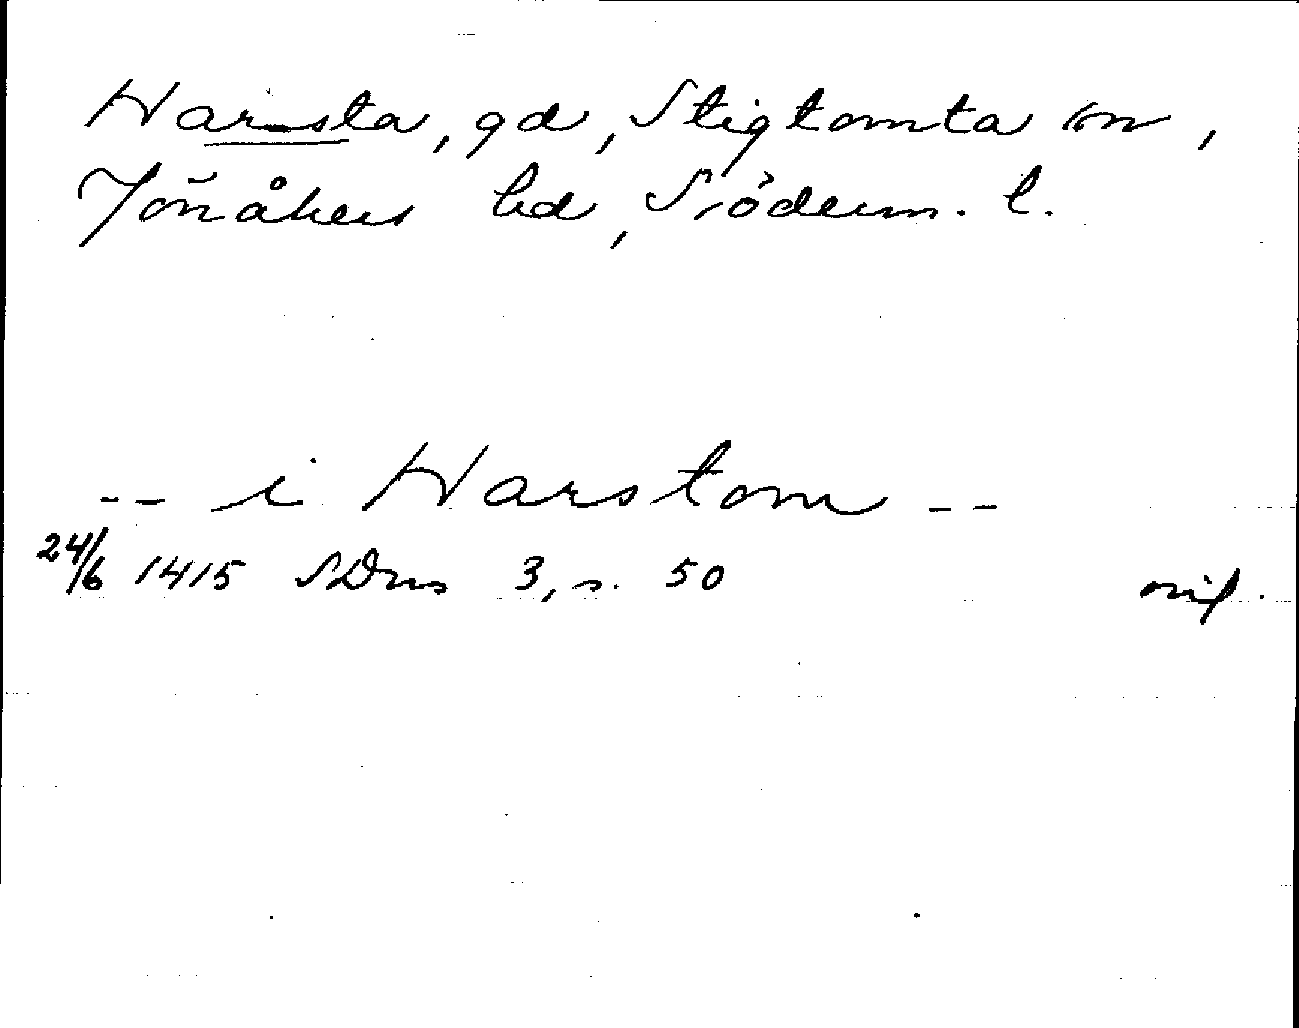 Harsta, gd, Stigtomta sn,
Jönåkers hd, Söderm. l.
-- i Harstom --
24/6 1415 SDns 3, s. 50 orig.